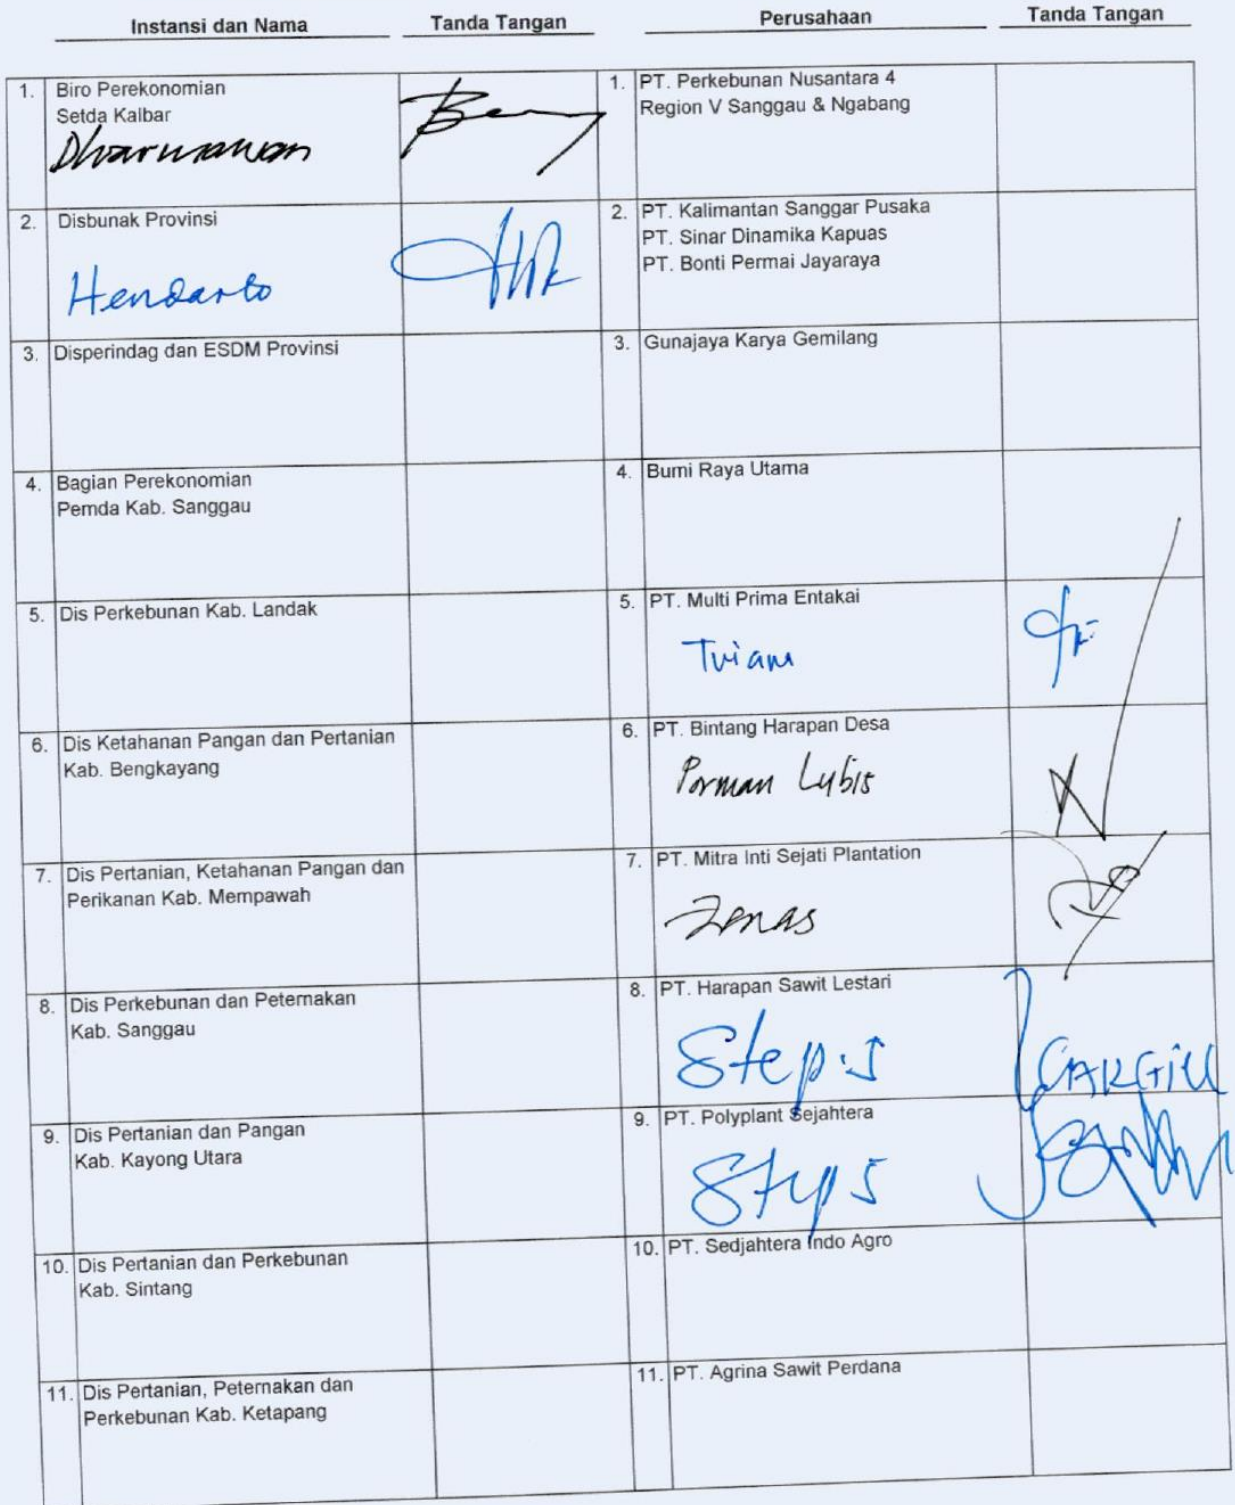 Instansi dan Nama
Tanda Tangan
Perusahaan
Tanda Tangan
1. Biro Perekonomian
Setda Kalbar
Dharmawan
1. PT. Perkebunan Nusantara 4
Region V Sanggau & Ngabang
2. Disbunak Provinsi
Hendarto
2. PT. Kalimantan Sanggar Pusaka
PT. Sinar Dinamika Kapuas
PT. Bonti Permai Jayaraya
3. Disperindag dan ESDM Provinsi
3. Gunajaya Karya Gemilang
4. Bagian Perekonomian
Pemda Kab. Sanggau
4. Bumi Raya Utama
5. Dis Perkebunan Kab. Landak
5. PT. Multi Prima Entakai
6. Dis Ketahanan Pangan dan Pertanian
Kab. Bengkayang
6. PT. Bintang Harapan Desa
Porman Lubis
7. Dis Pertanian, Ketahanan Pangan dan
Perikanan Kab. Mempawah
7. PT. Mitra Inti Sejati Plantation
Zenas
8. Dis Perkebunan dan Peternakan
Kab. Sanggau
8. PT. Harapan Sawit Lestari
CARGILL
9. Dis Pertanian dan Pangan
Kab. Kayong Utara
9. PT. Polyplant Sejahtera
10. Dis Pertanian dan Perkebunan
Kab. Sintang
10. PT. Sedjahtera Indo Agro
11. Dis Pertanian, Peternakan dan
Perkebunan Kab. Ketapang
11. PT. Agrina Sawit Perdana